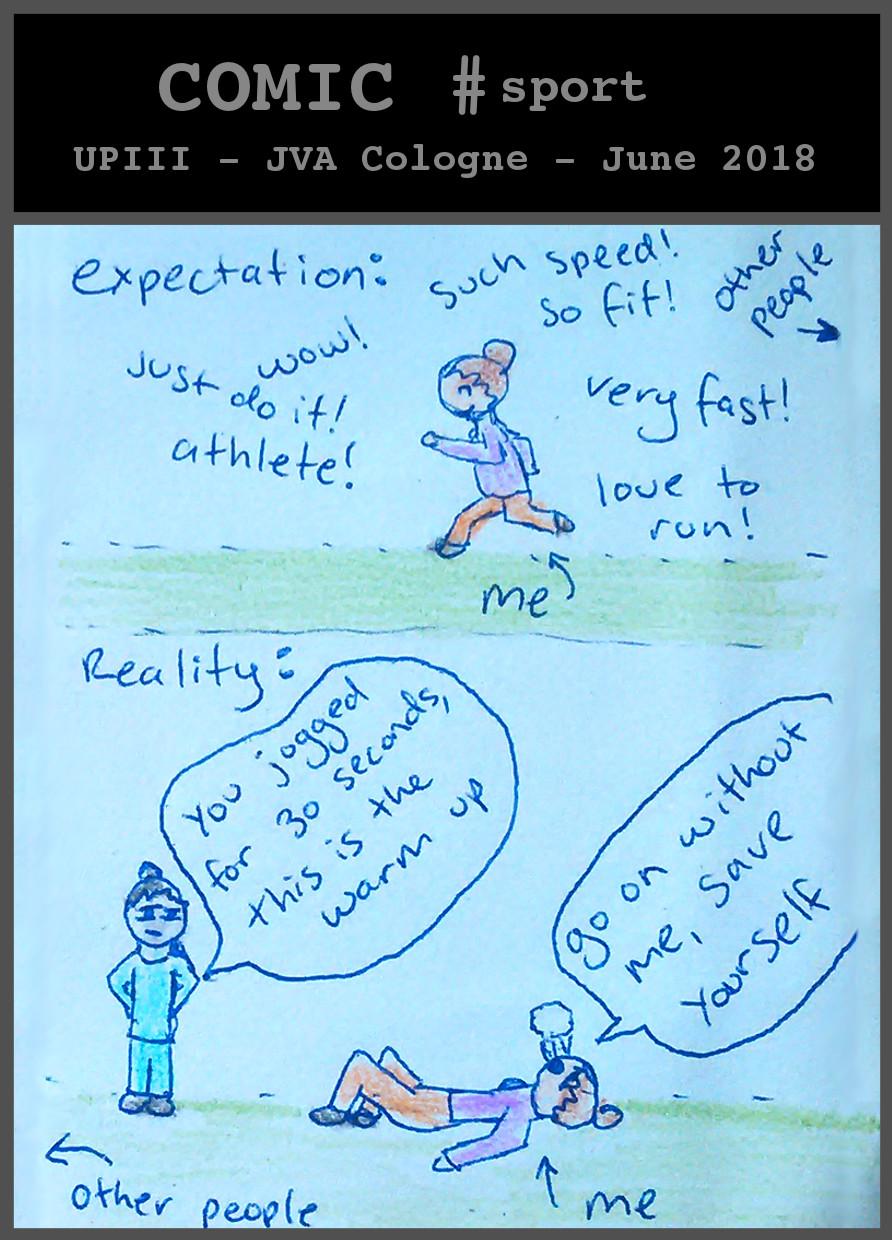 COMIC #sport
UPIII - JVA Cologne - June 2018
expectation:
such speed!
so fit!
other
people
just wow!
do it!
athlete!
very fast!
love to
run!
me
Reality:
You jogged
for 30 seconds,
this is the
warm up
go on without
me, save
yourself
other people
me